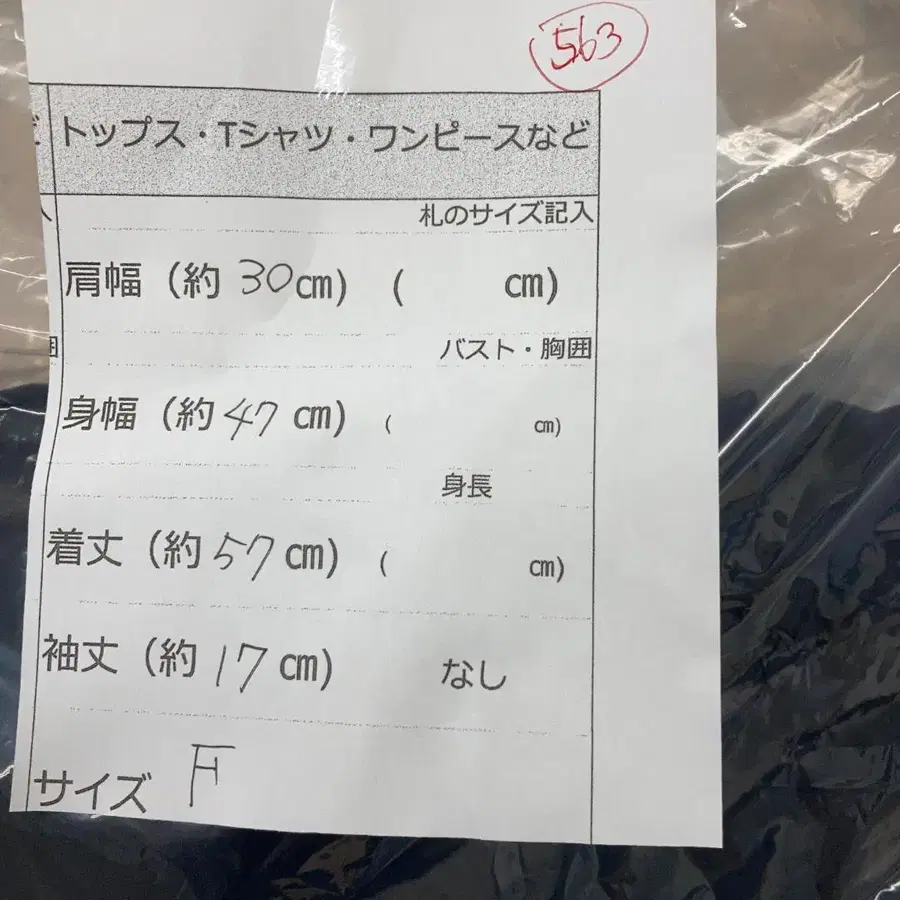 563
トップス・Tシャツ・ワンピースなど
札のサイズ記入
肩幅（約 30cm）（ cm）
バスト・胸囲
身幅（約 47 cm）（ cm）
身長
着丈（約 57 cm）（ cm）
袖丈（約 17 cm） なし
サイズ F